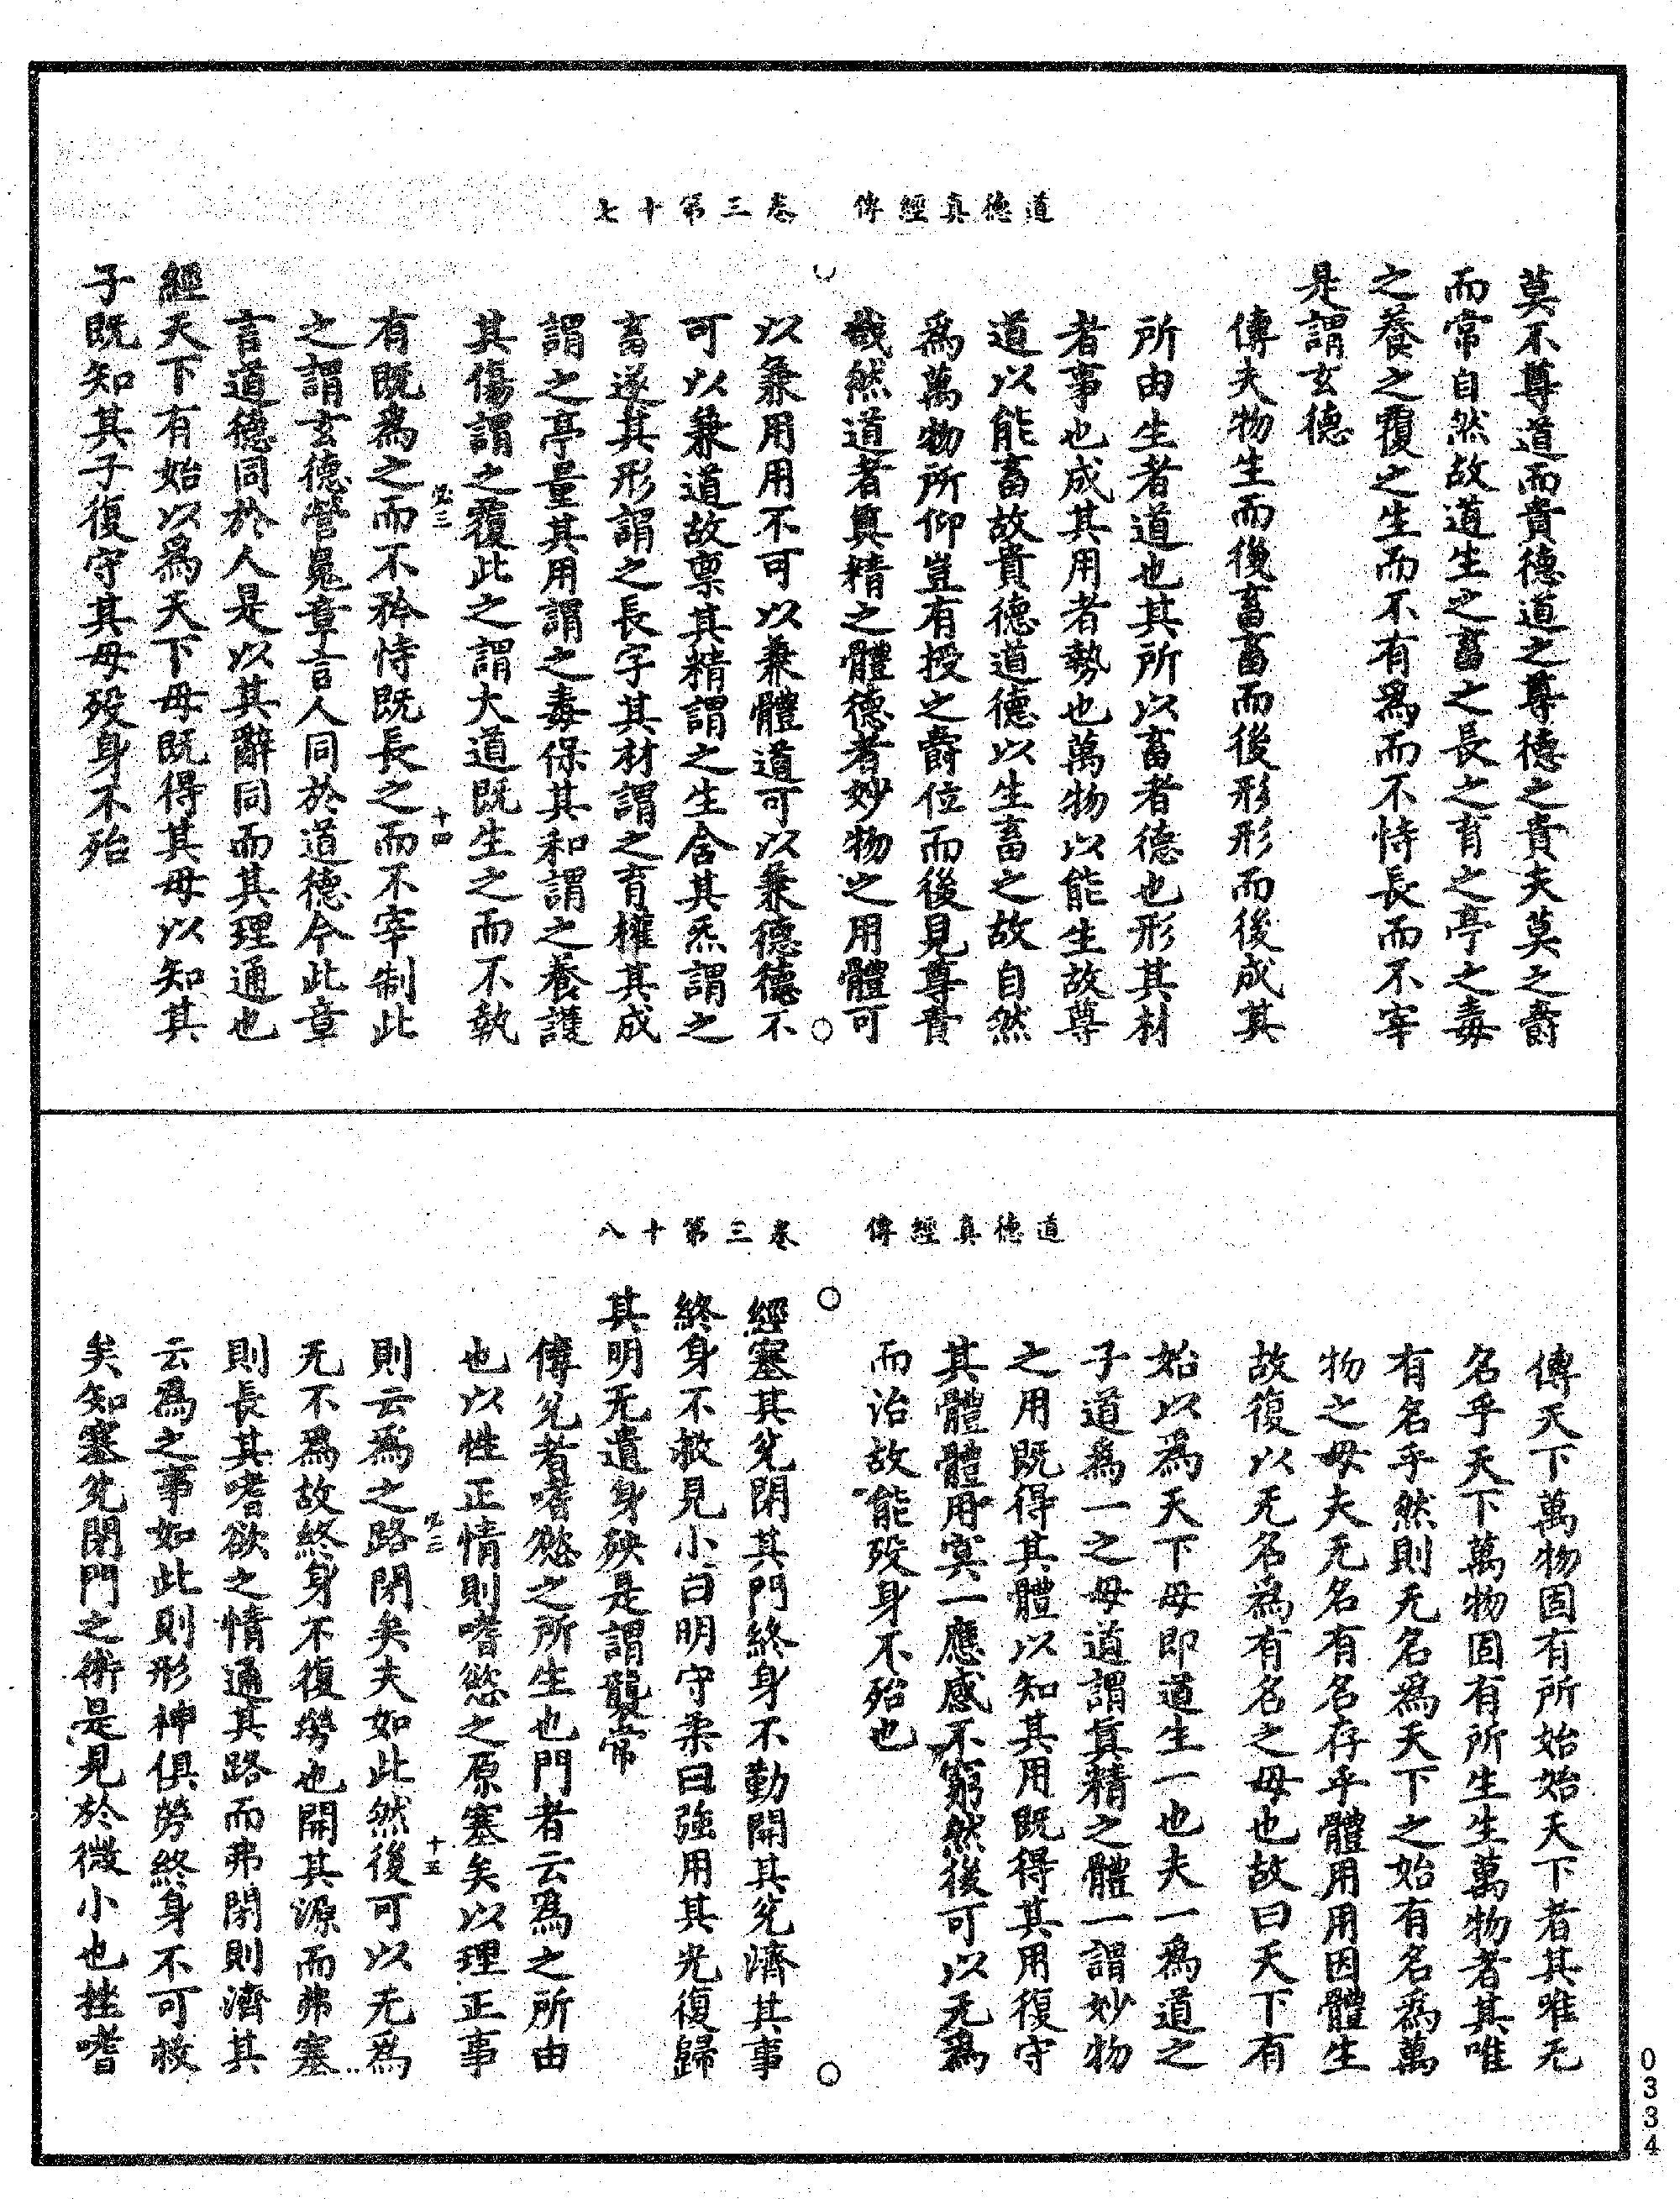 道德真經傳　卷三第十七
莫不尊道而貴德道之尊德之貴夫莫之爵
而常自然故道生之畜之長之育之亭之毒
之養之覆之生而不有爲而不恃長而不宰
是謂玄德
傳夫物生而後畜畜而後形形而後成其
所由生者道也其所以畜者德也形其材
者事也成其用者勢也萬物以能生故尊
道以能畜故貴德道德以生畜之故自然
爲萬物所仰豈有授之爵位而後見尊貴
哉然道者真精之體德者妙物之用體可
以兼用用不可以兼體道可以兼德德不
可以兼道故稟其精謂之生含其炁謂之
畜遂其形謂之長字其材謂之育權其成
謂之亭量其用謂之毒保其和謂之養護
其傷謂之覆此之謂大道既生之而不執
必三　十四
有既爲之而不矜恃既長之而不宰制此
之謂玄德管䰟章言人同於道德今此章
言道德同於人是以其辭同而其理通也
經天下有始以爲天下母既得其母以知其
子既知其子復守其母歿身不殆
道德真經傳　卷三第十八
傳天下萬物固有所始始天下者其唯无
名乎天下萬物固有所生生萬物者其唯
有名乎然則无名爲天下之始有名爲萬
物之母夫无名有名存乎體用用因體生
故復以无名為有名之母也故曰天下有
始以爲天下母即道生一也夫一爲道之
子道爲一之母道謂真精之體一謂妙物
之用既得其體以知其用既得其用復守
其體體用冥一應感不窮然後可以无為
而治故能歿身不殆也
經塞其兌閉其門終身不勤開其兌濟其事
終身不救見小曰明守柔曰強用其光復歸
其明无遺身殃是謂襲常
傳兌者嗜慾之所生也門者云爲之所由
也以性正情則嗜慾之原塞矣以理正事
必三　十五
則云爲之路閉矣夫如此然後可以无爲
无不爲故終身不復勞也開其源而弗塞
則長其嗜欲之情通其路而弗閉則濟其
云爲之事如此則形神俱勞終身不可救
矣知塞兌閉門之術是見於微小也挫嗜
0334